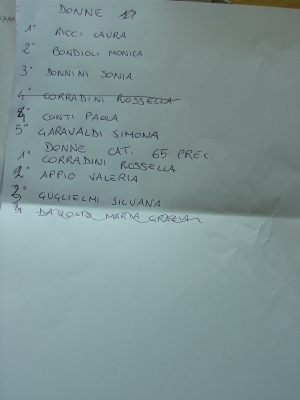 DONNE
1° RICCI LAURA
2° BONDIOLI MONICA
3° DONNINI SONIA
4° CORRADINI ROSSELLA
4° CONTI PAOLA
5° GARAVALDI SIMONA
DONNE CAT. 65 PREC.
1° CORRADINI ROSSELLA
2° APPIO VALERIA
3° GUGLIELMI SILVANA
DAVOLIO MARIA GRAZIA